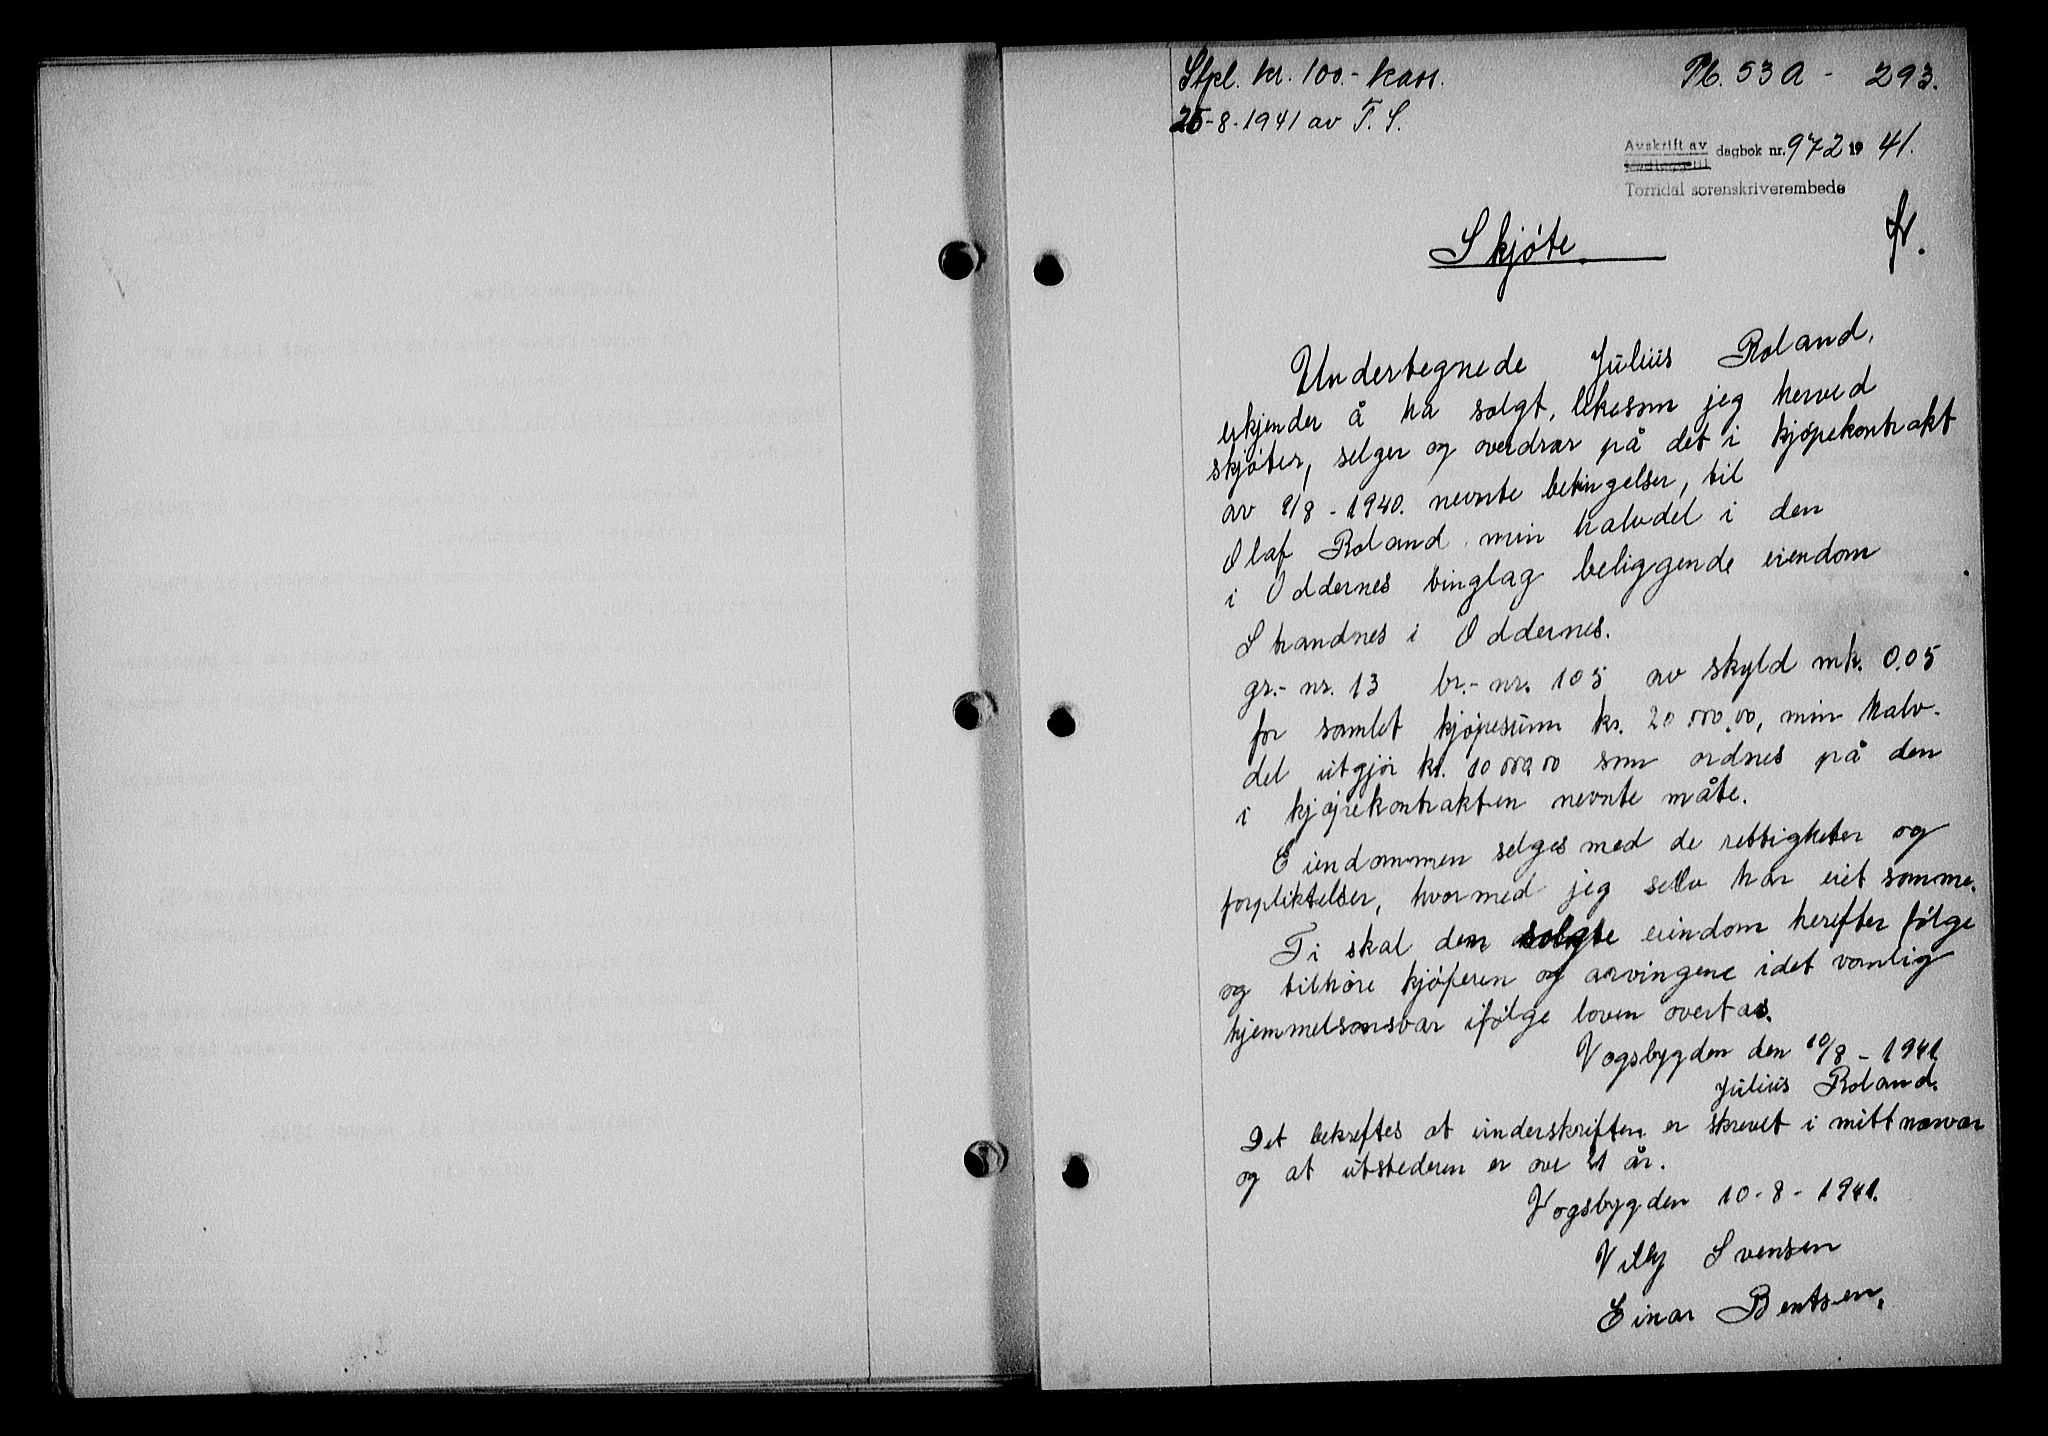 Stpl. kr. 100.- kass.
25-8-1941 av T. S.
Pb. 53 A - 293.
Avskrift av dagbok nr. 972 19 41.
Torridal sorenskriverembede
Skjøte.
Undertegnede Julius Roland,
erkjender å ha solgt, likesom jeg herved
skjøter, selger og overdrar på det i kjøpekontrakt
av 9/8 - 1940. nevnte betingelser, til
Olaf Roland min halvdel i den
i Oddernes tinglag beliggende eiendom
Strandnes i Oddernes.
gr.- nr. 13 br.- nr. 105 av skyld mk. 0.05
for samlet kjøpesum kr. 20 000,00, min halv-
del utgjør kr. 10 000,00 som ordnes på den
i kjøpekontrakten nevnte måte.
Eiendommen selges med de rettigheter og
forpliktelser, hvormed jeg selv har eiet samme.
Ti skal den solgte eiendom herefter følge
og tilhøre kjøperen og arvingene idet vanlig
hjemmelsansvar ifølge loven overtas.
Vogsbygden den 10/8 - 1941.
Julius Roland.
Det bekreftes at underskriften er skrevet i mitt nærvær
og at utstederen er over 21 år.
Vogsbygden 10-8-1941.
Villy Svensen
Einar Bentsen.